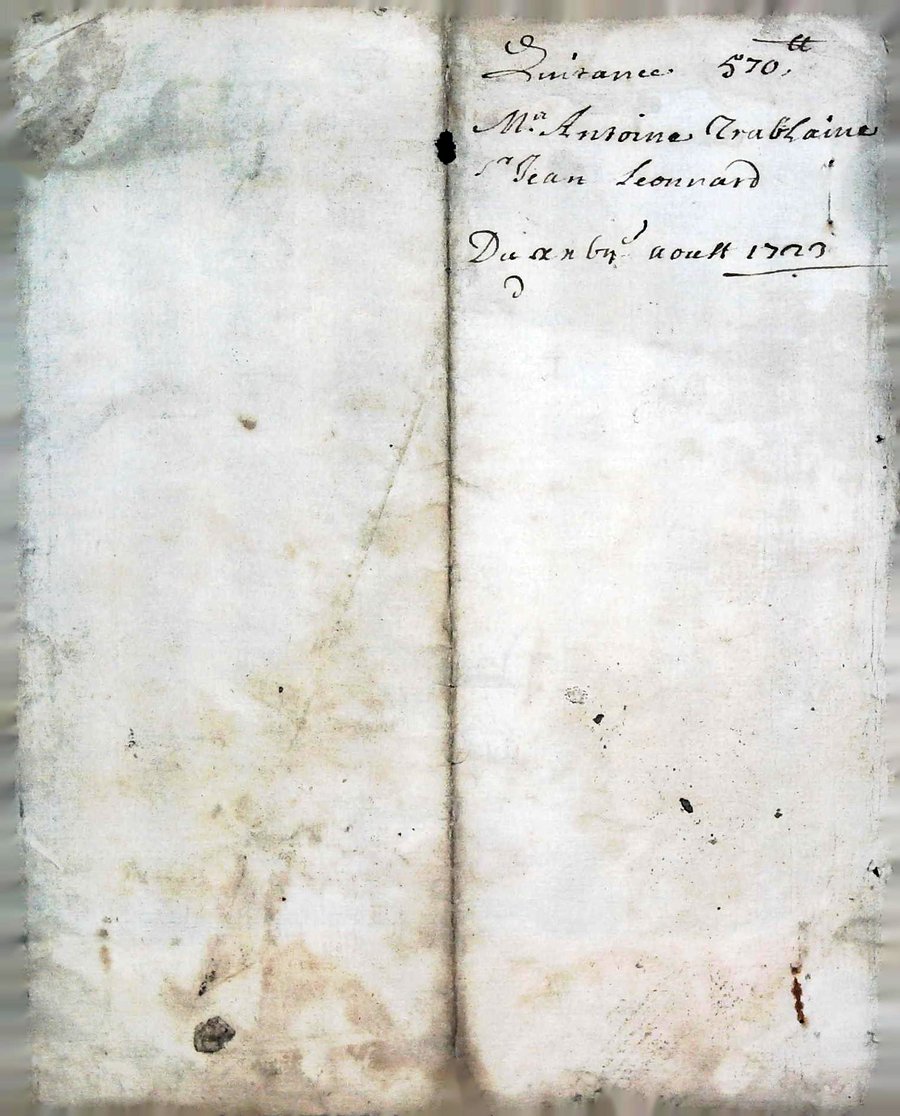 Quitance 570 ₶
Mr. Antoine Trablaine
Sr Jean Leonnard
Du aoust 1723